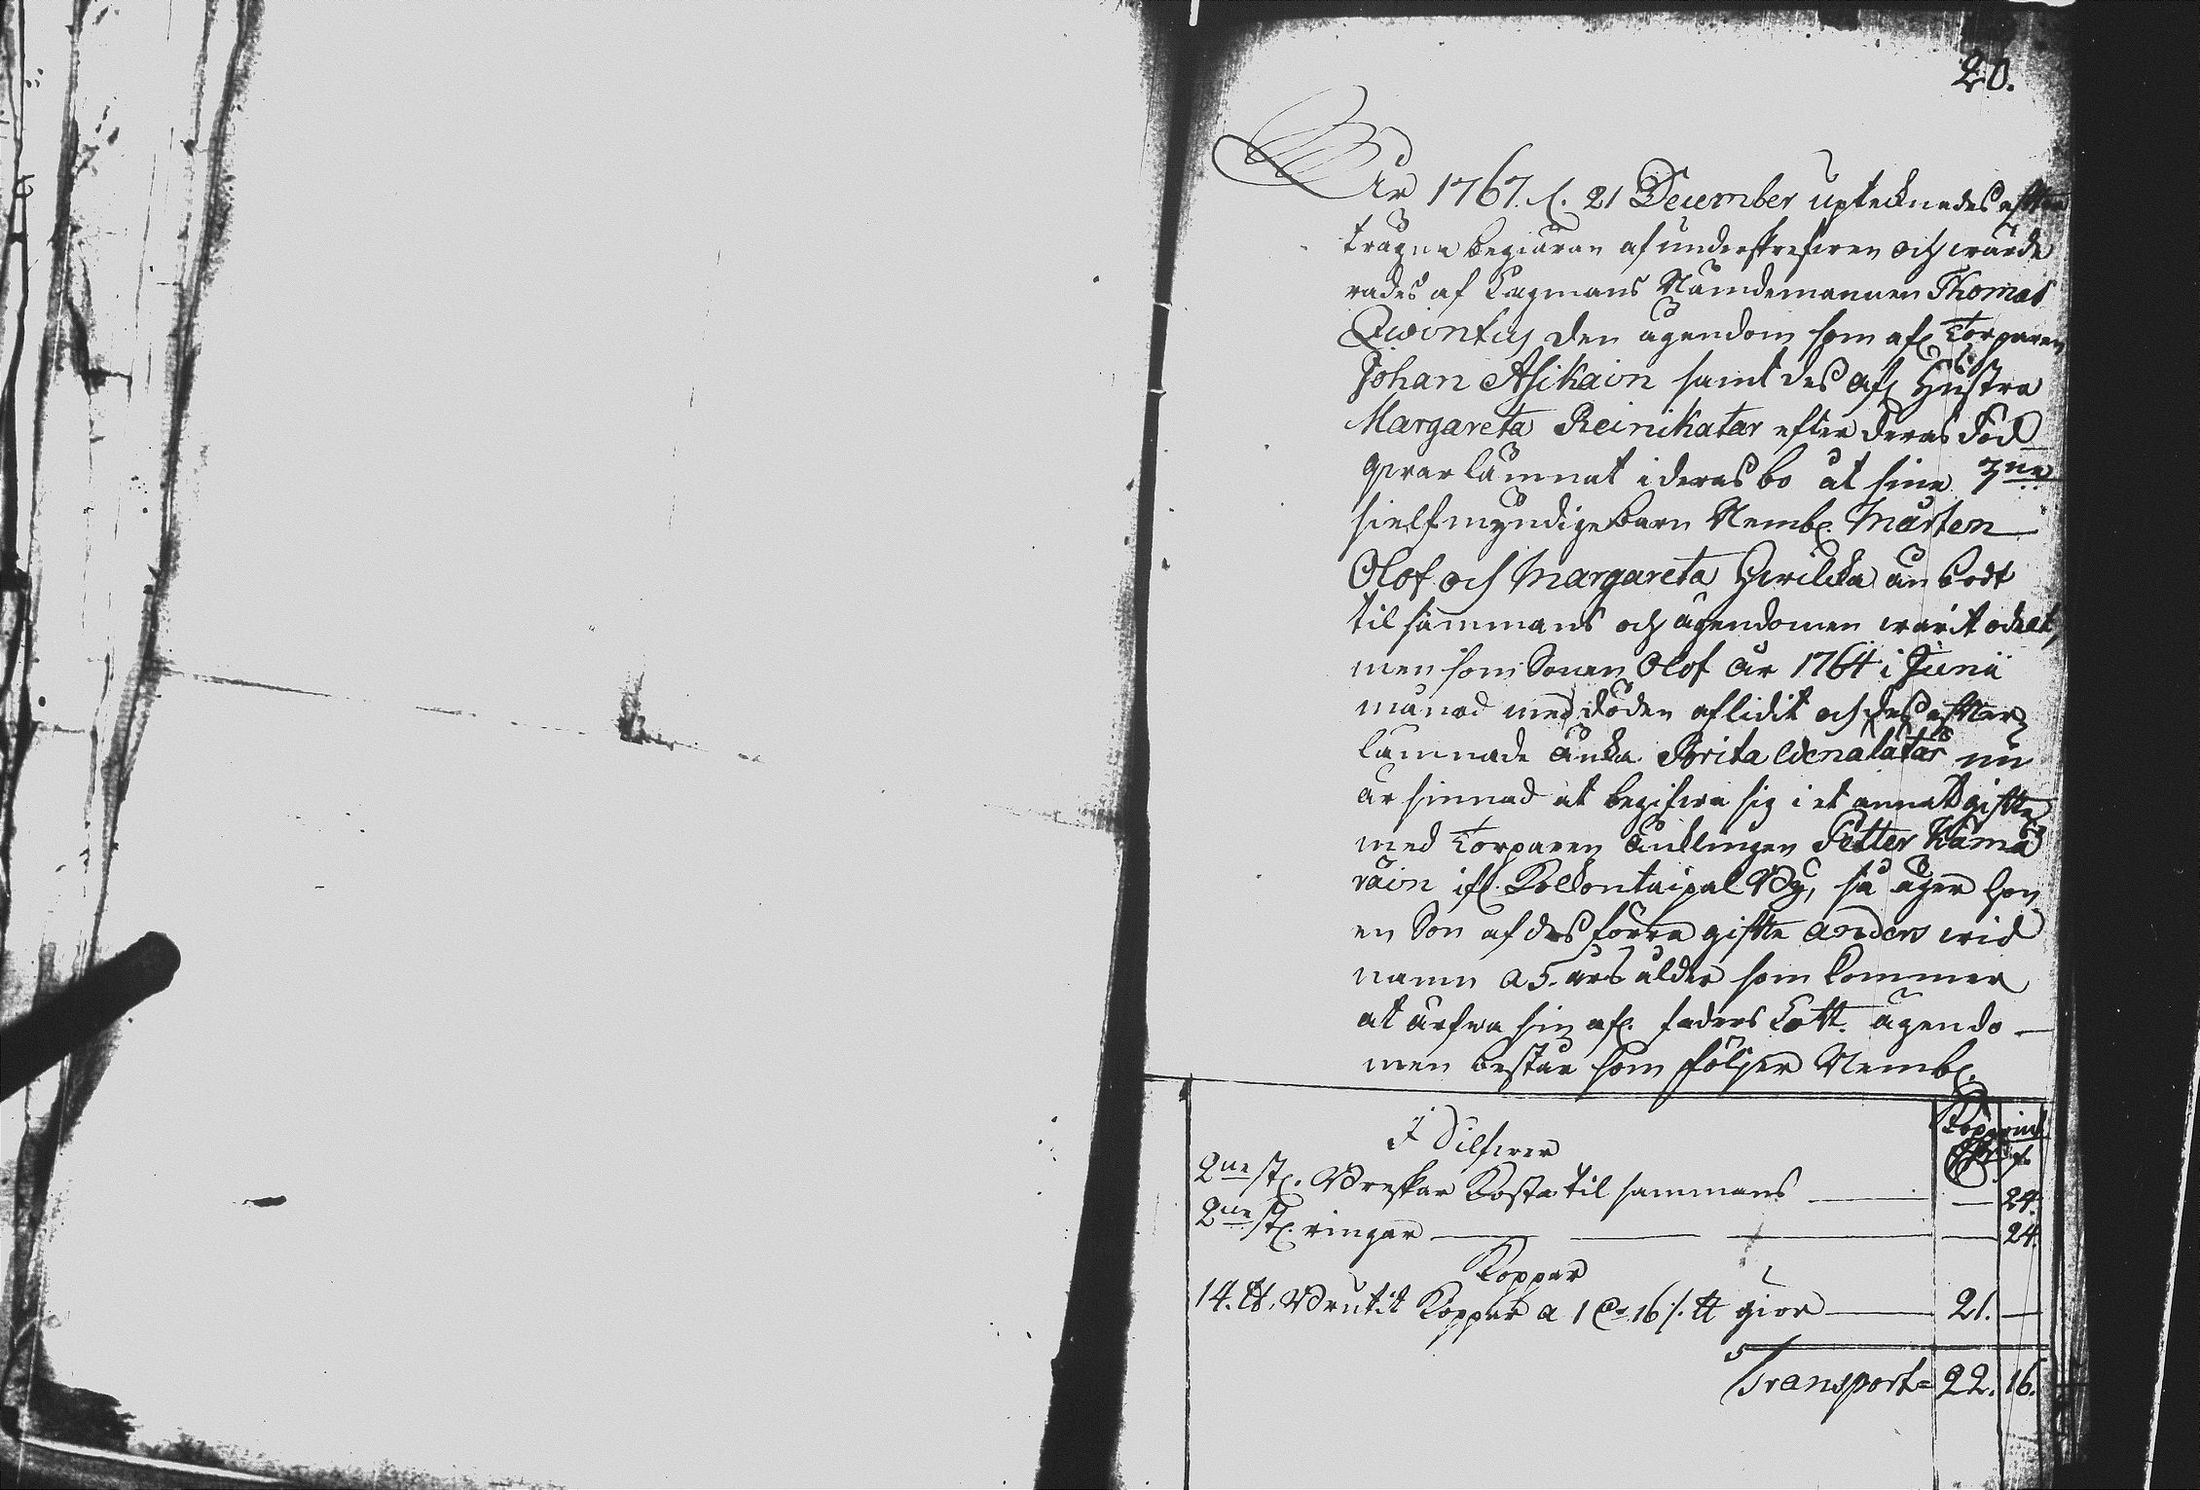 20.
År 1767. d. 21 December uptecknades efter
trägne begiäran af underskrefwen och wärde
rades af Lagmans Nämdemannen Thomas
Qwintus den ägendom som afl. Torparen
Johan Asikain samt des afl. Hustra
Margareta Reinikatar efter deras död
qwarlämnat i deras bo åt sine 3ne
sielfmyndige barn Nembl. Mårten
Olof och Margareta hwilcka än bodt
tilsammans och ägendomen warit odelt,
men som Sonen Olof år 1764 i Junii
månad med döden aflidit och des efter
lämnade Änka Brita nu
är sinnad at begifwa sig i et annat gifte
med Torparen Äncklingen Petter Kämä
räin ifr. Kolcontaipal By, så äger hon
en Son af des förra gifte Anders wid
namn a 5. års ålder som kommer
at ärfwa sin afl. faders Lott. ägendo-
men består som följer Nembl.
Kopparmt
I Silfwer
2ne st. Breskar Kosta til sammans — 24.
2ne st. ringar — 24.
Koppar
14. ℔. Brukit Koppar a 1 Dr 16 /. ℔ giör 21. —
Transport = 22. 16.